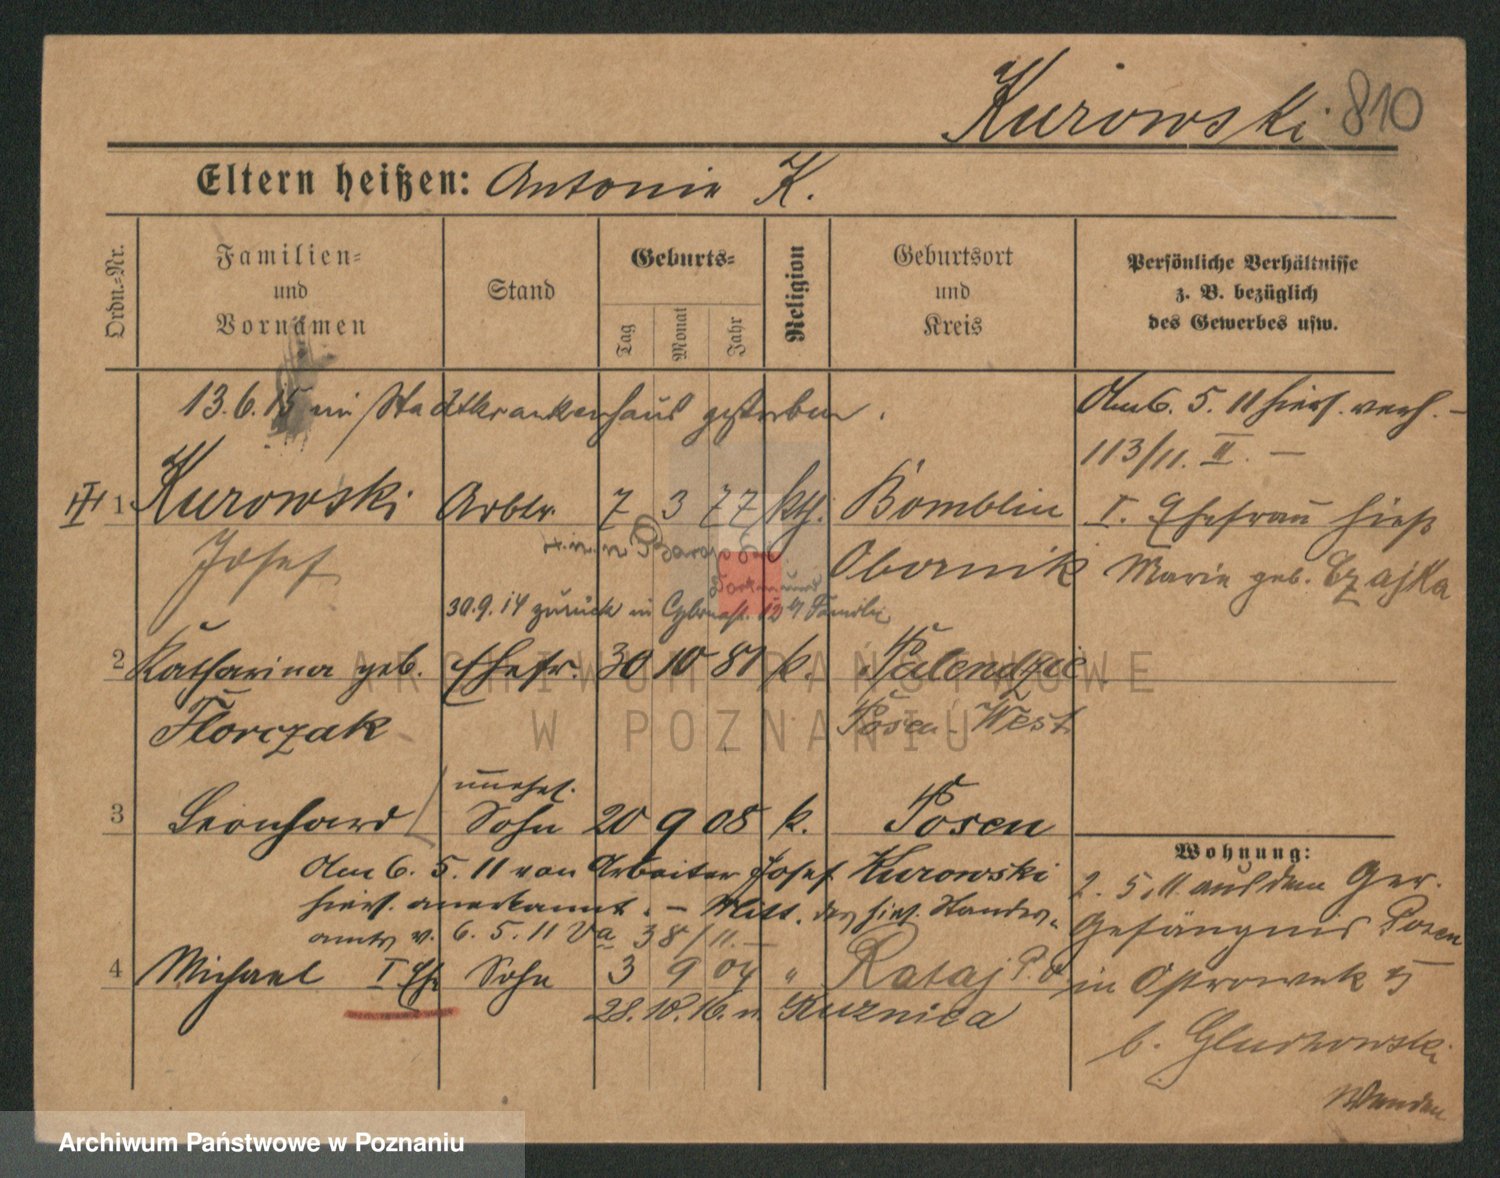 Kurowski 810
Eltern heißen: Antonie K.
Ordn.-Nr.
Familien- und Vornamen
Stand
Geburts-
Tag Monat Jahr
Religion
Geburtsort und Kreis
Persönliche Verhältnisse z. B. bezüglich des Gewerbes usw.
13.6.15 im Stadtkrankenhaus gestorben.
Am 6. 5. 11 hiers. verh. –
113/11. II. –
1 Kurowski Arbtr. 7 3 77 kth. Bomblin I. Ehefrau hieß
Josef Obornik Marie geb. Czajka
30.9.14 zurück in
2 Katharina geb. Ehefr. 30 10 81 k. Palendzie
Florczak Posen-West
unehel.
3 Leonhard Sohn 20 9 08 k. Posen
Am 6. 5. 11 von Arbeiter Josef Kurowski
hiers. anerkannt. – Mitt. des hies. Standes-
amts v. 6. 5. 11 Va 38/11. –
4 Michael I Ehe Sohn 3 9 04 " Rataj P. O
28. 10. 16. n. Kuznica
Wohnung:
2. 5. 11 aus dem Ger.
Gefängnis Posen
in Ostrowek 5
b.
ARCHIWUM PAŃSTWOWE
W POZNANIU
Archiwum Państwowe w Poznaniu